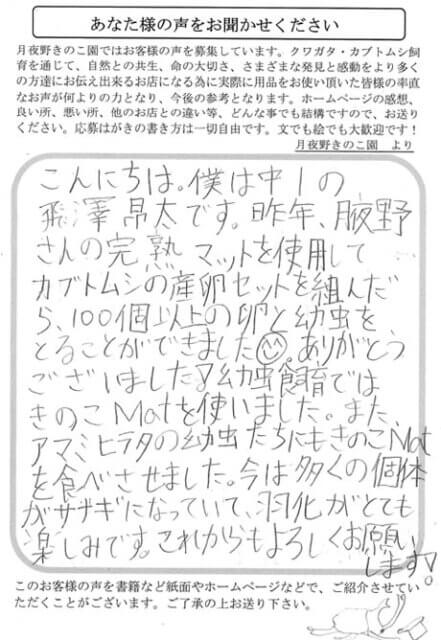 あなた様の声をお聞かせください
月夜野きのこ園ではお客様の声を募集しています。クワガタ・カブトムシ飼
育を通じて、自然との共生、命の大切さ、さまざまな発見と感動をより多く
の方達にお伝え出来るお店になる為に実際に用品をお使い頂いた皆様の率直
なお声が何よりの力となり、今後の参考となります。ホームページの感想、
良い所、悪い所、他のお店との違い等、どんな事でも結構ですので、お送り
ください。応募はがきの書き方は一切自由です。文でも絵でも大歓迎です！
月夜野きのこ園 より
こんにちは。僕は中1の
飛澤昂太です。昨年、腋野
さんの完熟マットを使用して
カブトムシの産卵セットを組んだ
ら、100個以上の卵と幼虫を
とることができました。ありがとう
ございました!幼虫飼育では
きのこMatを使いました。また、
アマミヒラタの幼虫たちにもきのこMat
を食べさせました。今は多くの個体
がサナギになっていて、羽化がとても
楽しみです。これからもよろしくお願い
します!
このお客様の声を書籍など紙面やホームページなどで、ご紹介させてい
ただくことがございます。ご了承の上お送り下さい。